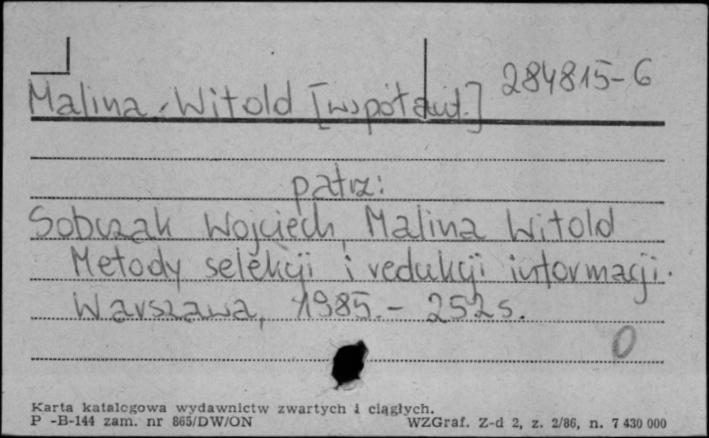 284815-6
Malina, Witold [współaut.]
patrz:
Sobczak Wojciech, Malina Witold
Metody selekcji i redukcji informacji.
Warszawa, 1985.- 252 s.
0
Karta katalogowa wydawnictw zwartych i ciągłych.
P -B-144 zam. nr 865/DW/ON WZGraf. Z-d 2, z. 2/86, n. 7 430 000